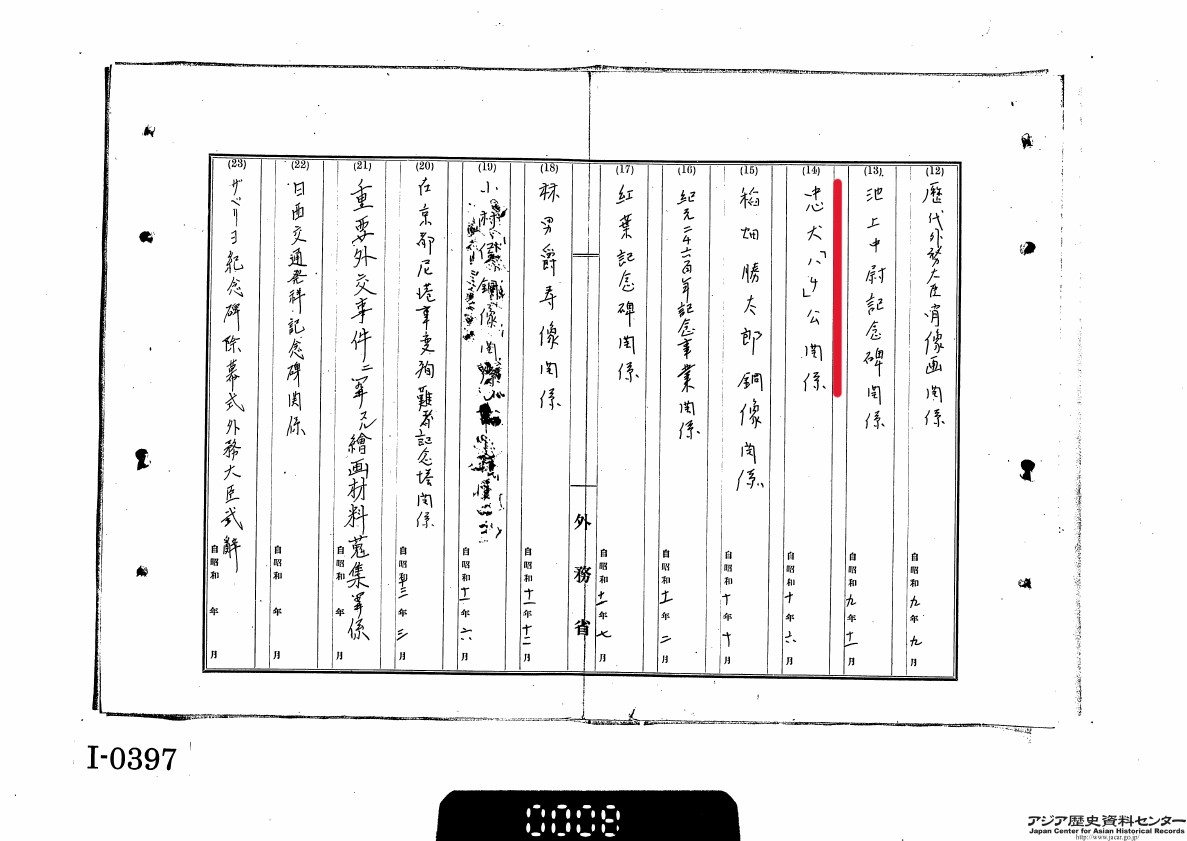 (12) 歴代外務大臣肖像画関係 自昭和九年九月
(13) 池上中尉記念碑関係 自昭和九年十一月
(14) 忠犬「ハチ」公関係 自昭和十年六月
(15) 稲畑勝太郎銅像関係 自昭和十年十月
(16) 紀元二千六百年記念事業関係 自昭和十一年二月
(17) 紅葉記念碑関係 自昭和十一年七月
外務省
(18) 林男爵寿像関係 自昭和十一年十二月
(19) 小林 銅像関 自昭和十一年六月
(20) 在京都尼塔事変殉難者記念塔関係 自昭和十三年三月
(21) 重要外交事件ニ関スル繪画材料蒐集関係 自昭和 年 月
(22) 日西交通発祥記念碑関係 自昭和 年 月
(23) サベリヨ紀念碑除幕式外務大臣式辞 自昭和 年 月
I-0397
0008
アジア歴史資料センター
Japan Center for Asian Historical Records
http://www.jacar.go.jp/